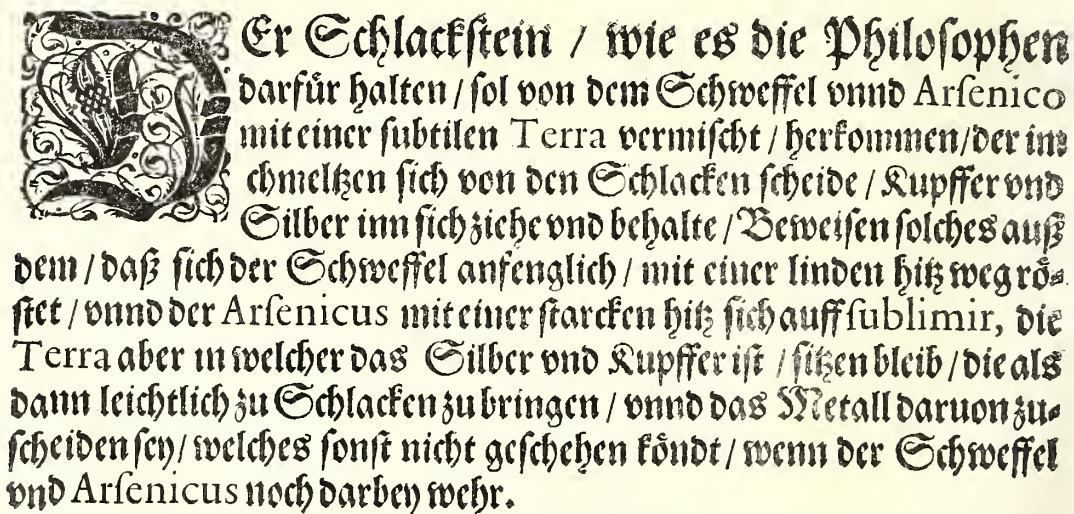 DEr Schlackſtein / wie es die Philoſophen
darfür halten / ſol von dem Schweffel vnnd Arſenico
mit einer ſubtilen Terra vermiſcht / herkommen / der im
chmeltzen ſich von den Schlacken ſcheide / Kupffer vnd
Silber inn ſich ziehe vnd behalte / Beweiſen ſolches auß
dem / daß ſich der Schweffel anfenglich / mit einer linden hitz weg rö⸗
ſtet / vnnd der Arſenicus mit einer ſtarcken hitz ſich auff ſublimir, die
Terra aber in welcher das Silber vnd Kupffer iſt / ſitzen bleib / die als
dann leichtlich zu Schlacken zu bringen / vnnd das Metall daruon zu⸗
ſcheiden ſey / welches ſonſt nicht geſchehen köndt / wenn der Schweffel
vnd Arſenicus noch darbey wehr.